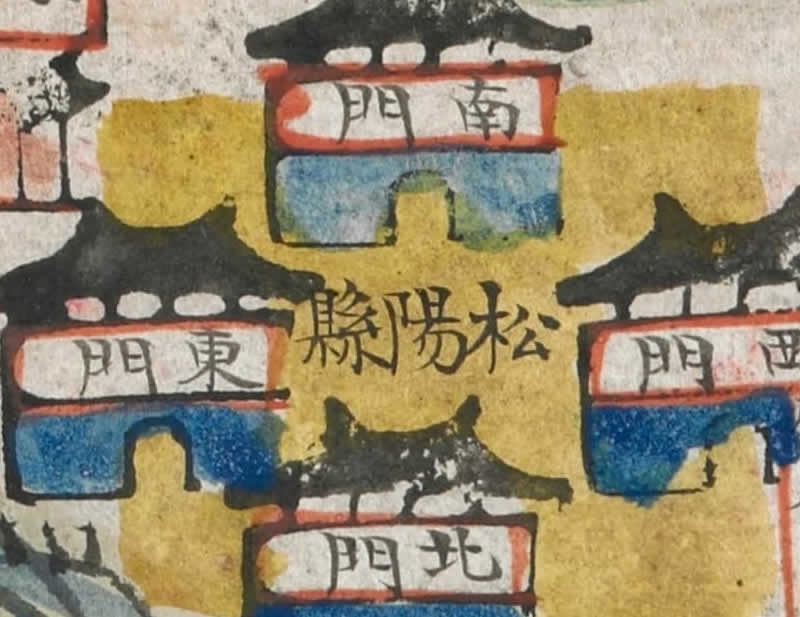 南門
西門
松陽縣
東門
北門